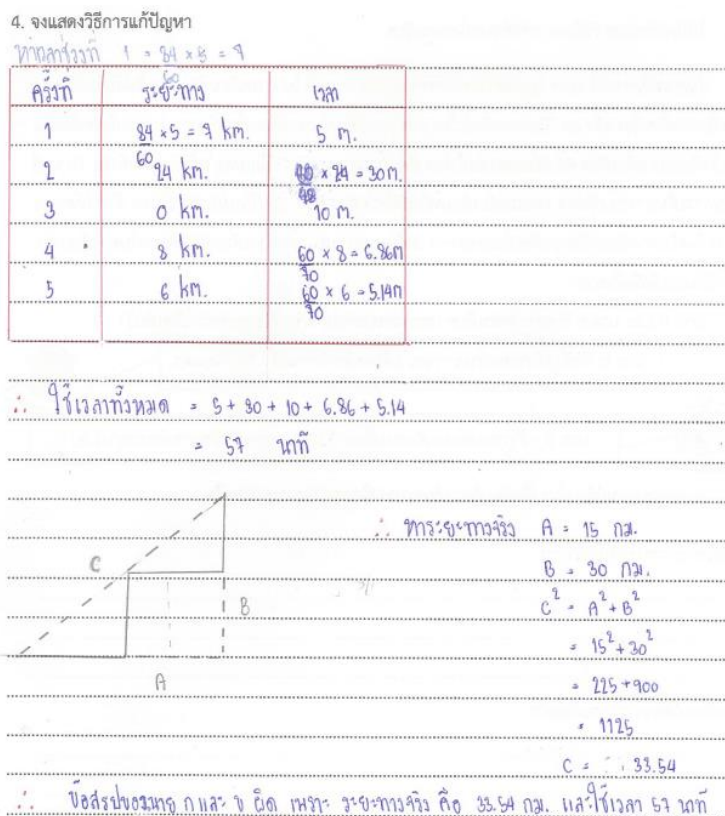 4. จงแสดงวิธีการแก้ปัญหา
หาเวลาช่วงที่ 1 = 84/60 × 5 = 7
ครั้งที่ ระยะทาง เวลา
1 84/60 × 5 = 7 km. 5 น.
2 24 km. × 24 = 30 น.
3 0 km. 10 น.
4 8 km. 60/70 × 8 = 6.86 น
5 6 km. 60/70 × 6 = 5.14 น
∴ ใช้เวลาทั้งหมด = 5 + 30 + 10 + 6.86 + 5.14
= 57 นาที
∴ หาระยะทางจริง A = 15 กม.
B = 30 กม.
C² = A² + B²
= 15² + 30²
= 225 + 900
= 1125
C = 33.54
C
B
A
∴ ข้อสรุปของนาย ก และ ข ผิด เพราะ ระยะทางจริง คือ 33.54 กม. และใช้เวลา 57 นาที